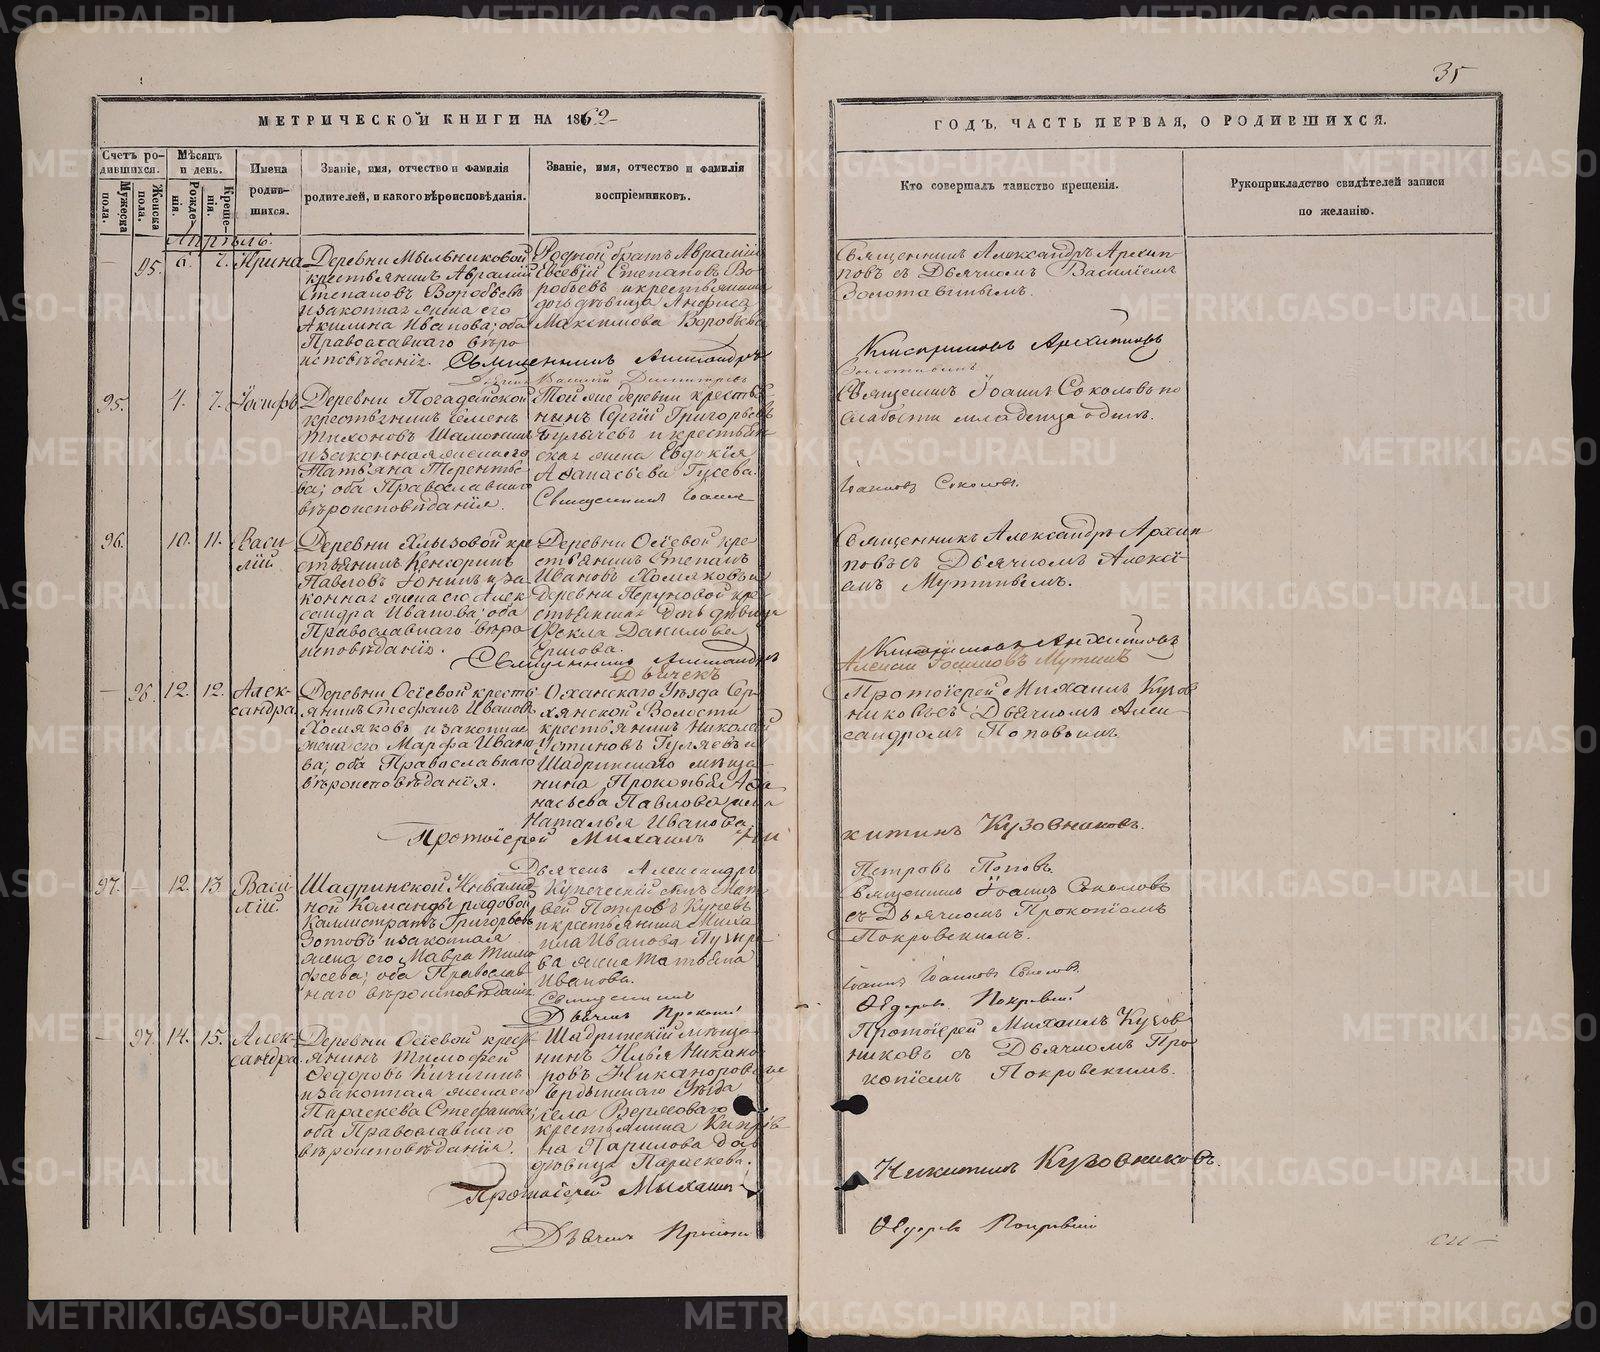 35
МЕТРИЧЕСКОЙ КНИГИ НА 1862
ГОДЪ, ЧАСТЬ ПЕРВАЯ, О РОДИВШИХСЯ.
Счетъ ро-
дившихся.
Мужеска
пола.
Женска
пола.
Мѣсяцъ
и день.
Рожде-
нія.
Креще-
нія.
Имена
родив-
шихся.
Званіе, имя, отчество и фамилія
родителей, и какого вѣроисповѣданія.
Званіе, имя, отчество и фамилія
воспріемниковъ.
Кто совершалъ таинство крещенія.
Рукоприкладство свидѣтелей записи
по желанію.
Апрѣль.
— 95. 6. 7. Ирина
Деревни Мыльниковой
крестьянинъ Авраамій
Степановъ Воробьевъ
и законная жена его
Акилина Иванова; оба
Православнаго вѣро-
исповѣданія.
Родной братъ Авраамія
Евсевій Степановъ Во-
робьевъ и крестьянина
дочь дѣвица Анфиса
Максимова Воробьева
Священникъ Александръ
Священникъ Александръ Архип-
повъ съ Дьячкомъ Василіемъ
Золотавинымъ.
Архиповъ
95. 4. 7. Іосифъ
Деревни Погадайской
крестьянинъ Семенъ
Тихоновъ Шамонинъ
и законная жена его
Татьяна Терентье-
ва; оба Православнаго
вѣроисповѣданія.
Той же деревни крестья-
нинъ Сергій Григорьевъ
Булычевъ и крестьян-
ская жена Евдокія
Аѳанасьева Гусева.
Священникъ Іоаннъ
Священникъ Іоаннъ Соколовъ по
слабости младенца одинъ.
Іоанновъ Соколовъ.
96. 10. 11. Васи-
лій
Деревни Хлызовой кре-
стьянинъ Кенсоринъ
Павловъ Юнинъ и за-
конная жена его Алек-
сандра Иванова; оба
Православнаго вѣро-
исповѣданія.
Деревни Осѣевой кре-
стьянинъ Степанъ
Ивановъ Хомяковъ и
деревни Перуновой кре-
стьянина дочь дѣвица
Ѳекла Данилова
Священникъ Александръ
Дьячекъ
Священникъ Александръ Архип-
повъ съ Дьячкомъ Алексѣ-
емъ Мутинымъ.
Архиповъ
Алексѣй Мутинъ
— 96. 12. 12. Алек-
сандра
Деревни Осѣевой кресть-
янинъ Стефанъ Ивановъ
Хомяковъ и законная
жена его Марфа Ивано-
ва; оба Православнаго
вѣроисповѣданія.
Оханскаго Уѣзда Сер-
хянской Волости
крестьянинъ Николай
Устиновъ Гуляевъ и
Шадринскаго мѣща-
нина Прокопья Аѳа-
насьева Павлова жена
Наталья Иванова.
Протоіерей Михаилъ Ни-
Дьячекъ Александръ
Протоіерей Михаилъ Кузов-
никовъ съ Дьячкомъ Алек-
сандромъ Поповымъ.
китинъ Кузовниковъ.
Петровъ Поповъ.
97. — 12. 13. Васи-
лій.
Шадринской Инвалид-
ной Команды рядовой
Каллистратъ Григорьевъ
Зотовъ и законная
жена его Мавра Тимо-
феева; оба Православ-
наго вѣроисповѣданія
Купеческій сынъ Мат-
вей Петровъ Кучевъ
и крестьянина Миха-
ила Иванова Пузыре-
ва жена Татьяна
Иванова.
Священникъ
Дьячекъ Прокопій
Священникъ Іоаннъ Соколовъ
съ Дьячкомъ Прокопіемъ
Покровскимъ.
Іоаннъ Іоанновъ Соколовъ.
Ѳедоровъ Покровскій
— 97. 14. 15. Алек-
сандра
Деревни Осѣевой кресть-
янинъ Тимофей
Ѳедоровъ Кичигинъ
и законная жена его
Параскева Стефанова;
оба Православнаго
вѣроисповѣданія.
Шадринскій мѣща-
нинъ Илья Никано-
ровъ Никаноровъ и
Ирбитскаго Уѣзда
села
крестьянина Кипріа-
на Парилова дочь
дѣвица Параскева.
Протоіерей Михаилъ
Дьячекъ Прокопій
Протоіерей Михаилъ Кузов-
никовъ съ Дьячкомъ Про-
копіемъ Покровскимъ.
Никитинъ Кузовниковъ.
Ѳедоровъ Покровскій
METRIKI.GASO-URAL.RU